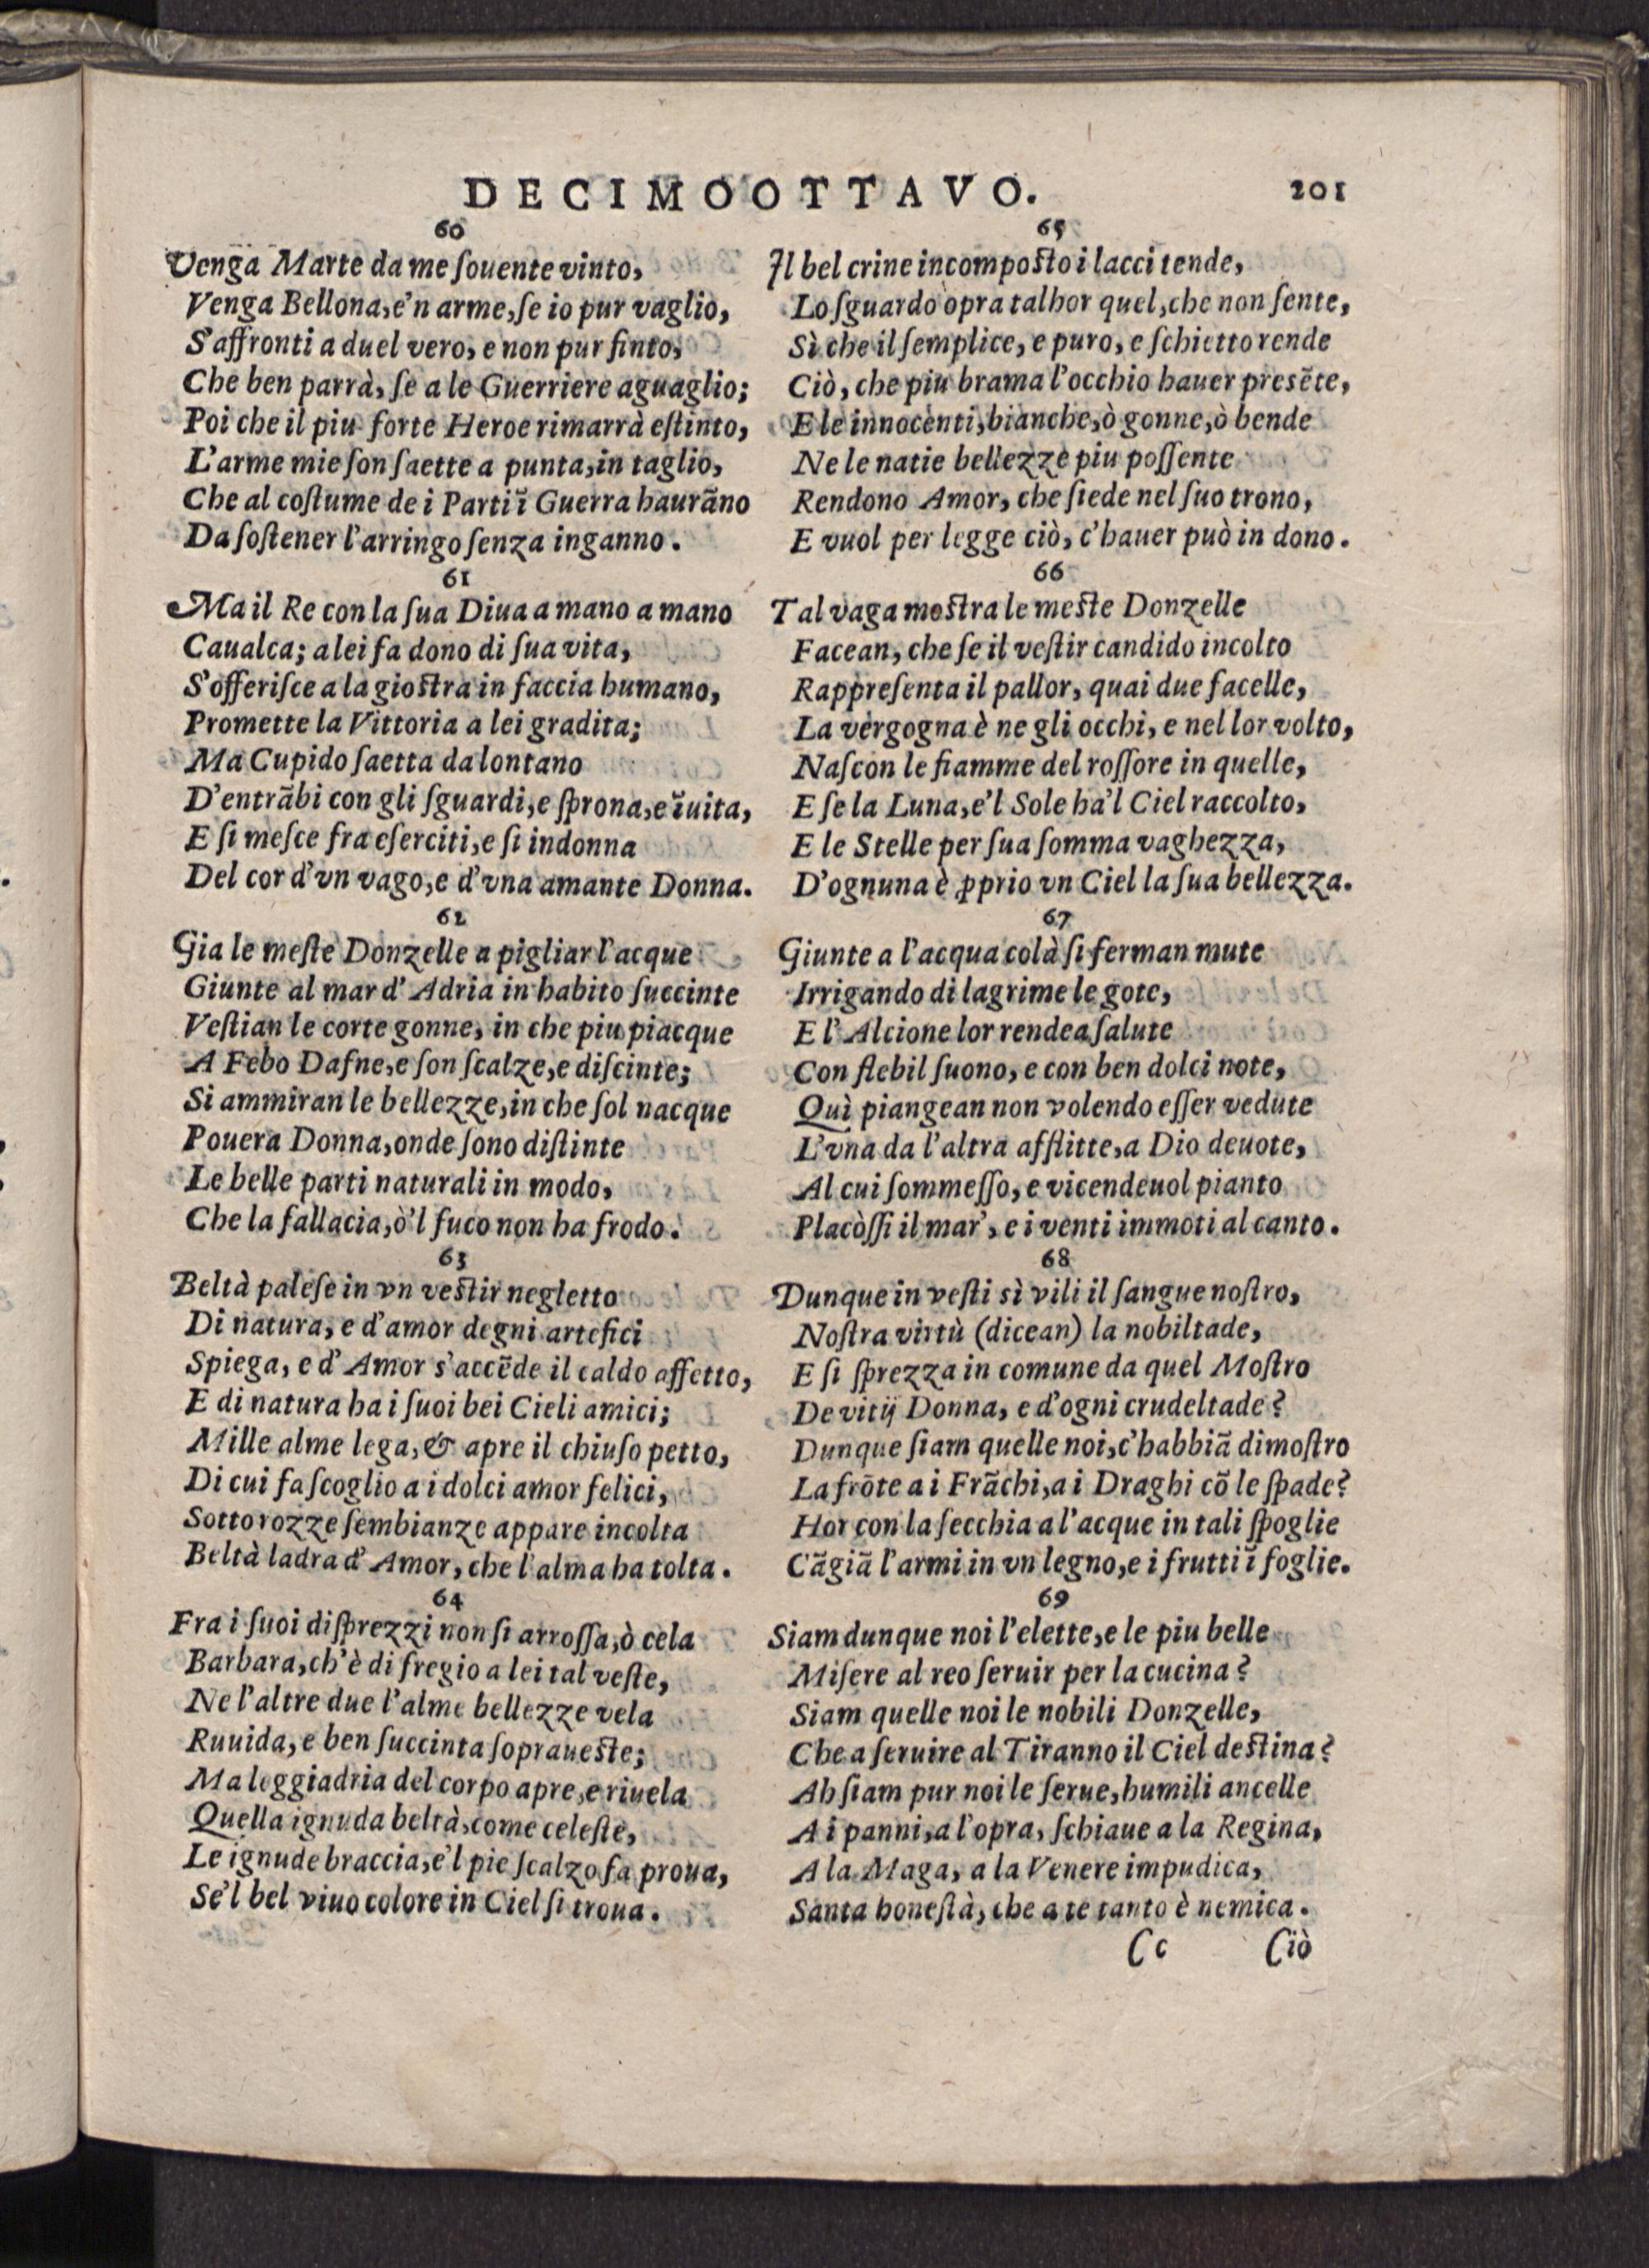 DECIMOOTTAVO. 201
60
Venga Marte da me ſouente vinto,
Venga Bellona, e'n arme, ſe io pur vaglio,
S'affronti a duel vero, e non pur finto,
Che ben parrà, ſe a le Guerriere aguaglio;
Poi che il piu forte Heroe rimarrà eſtinto,
L'arme mie ſon ſaette a punta, in taglio,
Che al coſtume de i Parti ĩ Guerra haurãno
Da ſoſtener l'arringo ſenza inganno.
61
Ma il Re con la ſua Diua a mano a mano
Caualca; a lei fa dono di ſua vita,
S'offeriſce a la gioſtra in faccia humano,
Promette la Vittoria a lei gradita;
Ma Cupido ſaetta da lontano
D'entrãbi con gli ſguardi, e ſprona, e ĩuita,
E ſi meſce fra eſerciti, e ſi indonna
Del cor d'vn vago, e d'vna amante Donna.
62
Gia le meſte Donzelle a pigliar l'acque
Giunte al mar d'Adria in habito ſuccinte
Veſtian le corte gonne, in che piu piacque
A Febo Dafne, e ſon ſcalze, e diſcinte;
Si ammiran le bellezze, in che ſol nacque
Pouera Donna, onde ſono diſtinte
Le belle parti naturali in modo,
Che la fallacia, ò'l fuco non ha frodo.
63
Beltà paleſe in vn veſtir negletto
Di natura, e d'amor degni artefici
Spiega, e d'Amor s'accẽde il caldo affetto,
E di natura ha i ſuoi bei Cieli amici;
Mille alme lega, & apre il chiuſo petto,
Di cui fa ſcoglio a i dolci amor felici,
Sotto rozze ſembianze appare incolta
Beltà ladra d'Amor, che l'alma ha tolta.
64
Fra i ſuoi diſprezzi non ſi arroſſa, ò cela
Barbara, ch'è di fregio a lei tal veſte,
Ne l'altre due l'alme bellezze vela
Ruuida, e ben ſuccinta ſopraueſte;
Ma leggiadria del corpo apre, e riuela
Quella ignuda beltà, come celeſte,
Le ignude braccia, e'l pie ſcalzo fa proua,
Se'l bel viuo colore in Ciel ſi troua.
65
Il bel crine incompoſto i lacci tende,
Lo ſguardo opra talhor quel, che non ſente,
Sì che il ſemplice, e puro, e ſchietto rende
Ciò, che piu brama l'occhio hauer presẽte,
E le innocenti, bianche, ò gonne, ò bende
Ne le natie bellezze piu poſſente
Rendono Amor, che ſiede nel ſuo trono,
E vuol per legge ciò, c'hauer può in dono.
66
Tal vaga moſtra le meſte Donzelle
Facean, che ſe il veſtir candido incolto
Rappreſenta il pallor, quai due facelle,
La vergogna è ne gli occhi, e nel lor volto,
Naſcon le fiamme del roſſore in quelle,
E ſe la Luna, e'l Sole ha'l Ciel raccolto,
E le Stelle per ſua ſomma vaghezza,
D'ognuna è ꝓprio vn Ciel la ſua bellezza.
67
Giunte a l'acqua colà ſi ferman mute
Irrigando di lagrime le gote,
E l'Alcione lor rendea ſalute
Con flebil ſuono, e con ben dolci note,
Quì piangean non volendo eſſer vedute
L'vna da l'altra afflitte, a Dio deuote,
Al cui ſommeſſo, e vicendeuol pianto
Placòſſi il mar, e i venti immoti al canto.
68
Dunque in veſti sì vili il ſangue noſtro,
Noſtra virtù (dicean) la nobiltade,
E ſi ſprezza in comune da quel Moſtro
De vitij Donna, e d'ogni crudeltade?
Dunque ſiam quelle noi, c'habbiã dimoſtro
La frõte a i Frãchi, a i Draghi cõ le ſpade?
Hor con la ſecchia a l'acque in tali ſpoglie
Cãgiã l'armi in vn legno, e i frutti ĩ foglie.
69
Siam dunque noi l'elette, e le piu belle
Miſere al reo ſeruir per la cucina?
Siam quelle noi le nobili Donzelle,
Che a ſeruire al Tiranno il Ciel deſtina?
Ah ſiam pur noi le ſerue, humili ancelle
A i panni, a l'opra, ſchiaue a la Regina,
A la Maga, a la Venere impudica,
Santa honeſtà, che a te tanto è nemica.
Cc Ciò